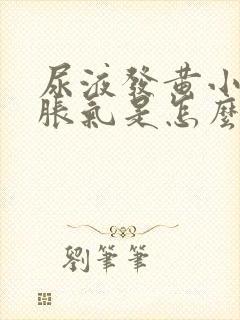 尿液發黃小
脹氣是怎麼
劉筆筆